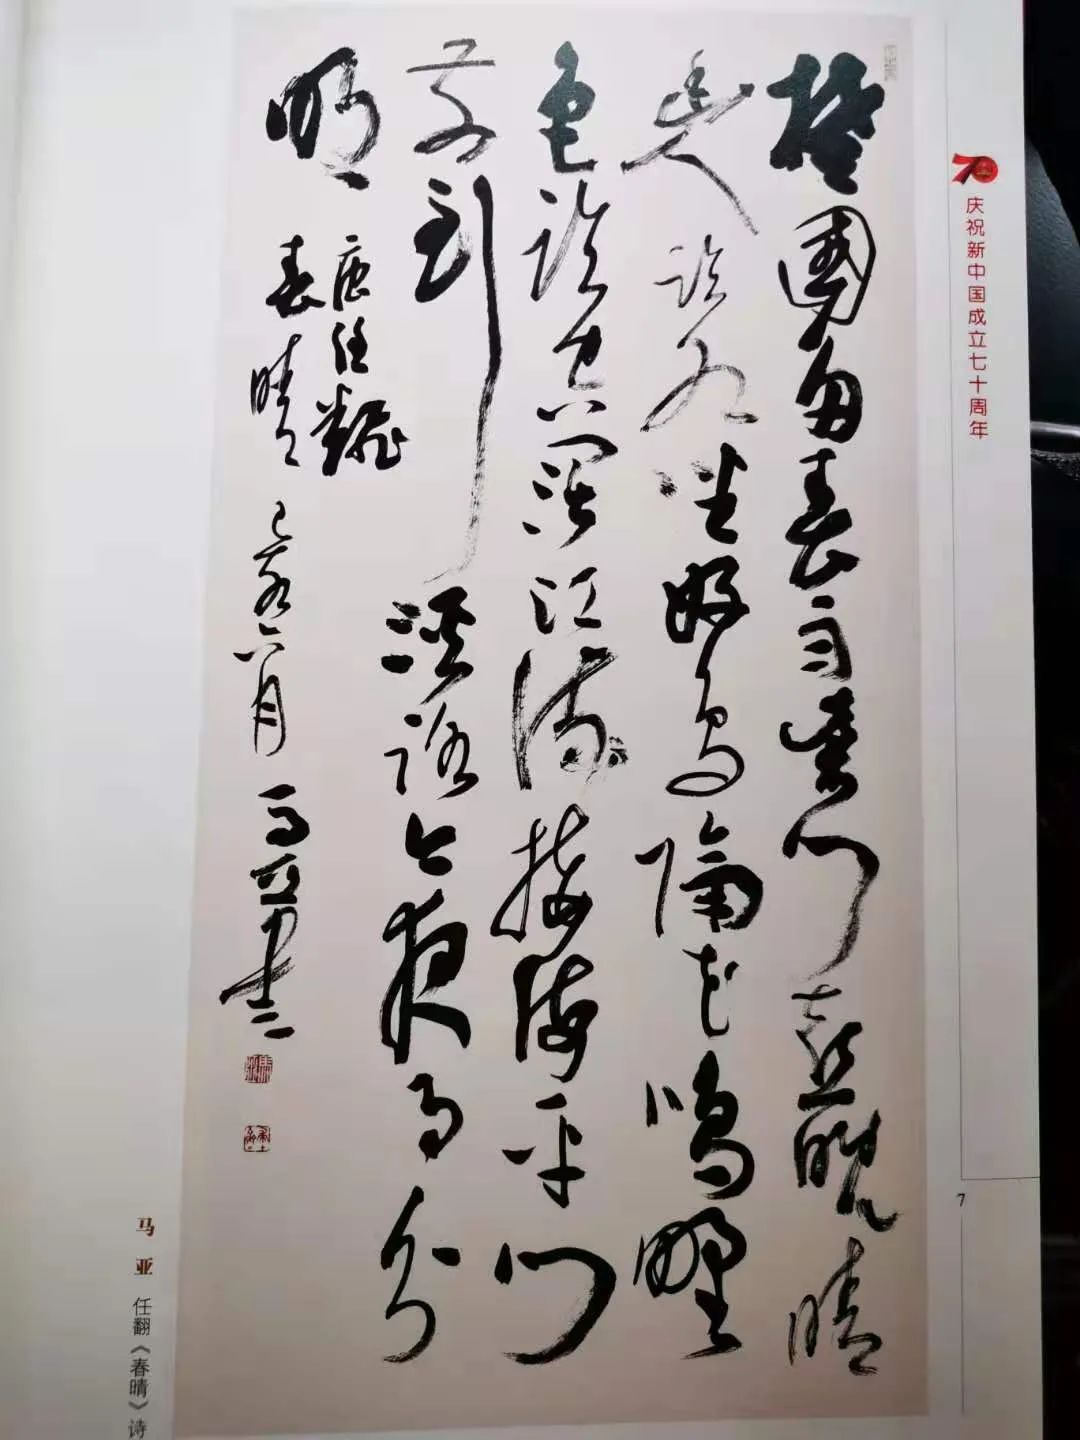 楚國多春雨柴門喜晚晴
幽人臨水坐好鳥隔花鳴野
色臨空闊江流接海平門
前到溪路今夜月分
明
唐任翻
春晴 己亥六月 馬亞書
70
庆祝新中国成立七十周年
7
马亚 任翻《春晴》诗